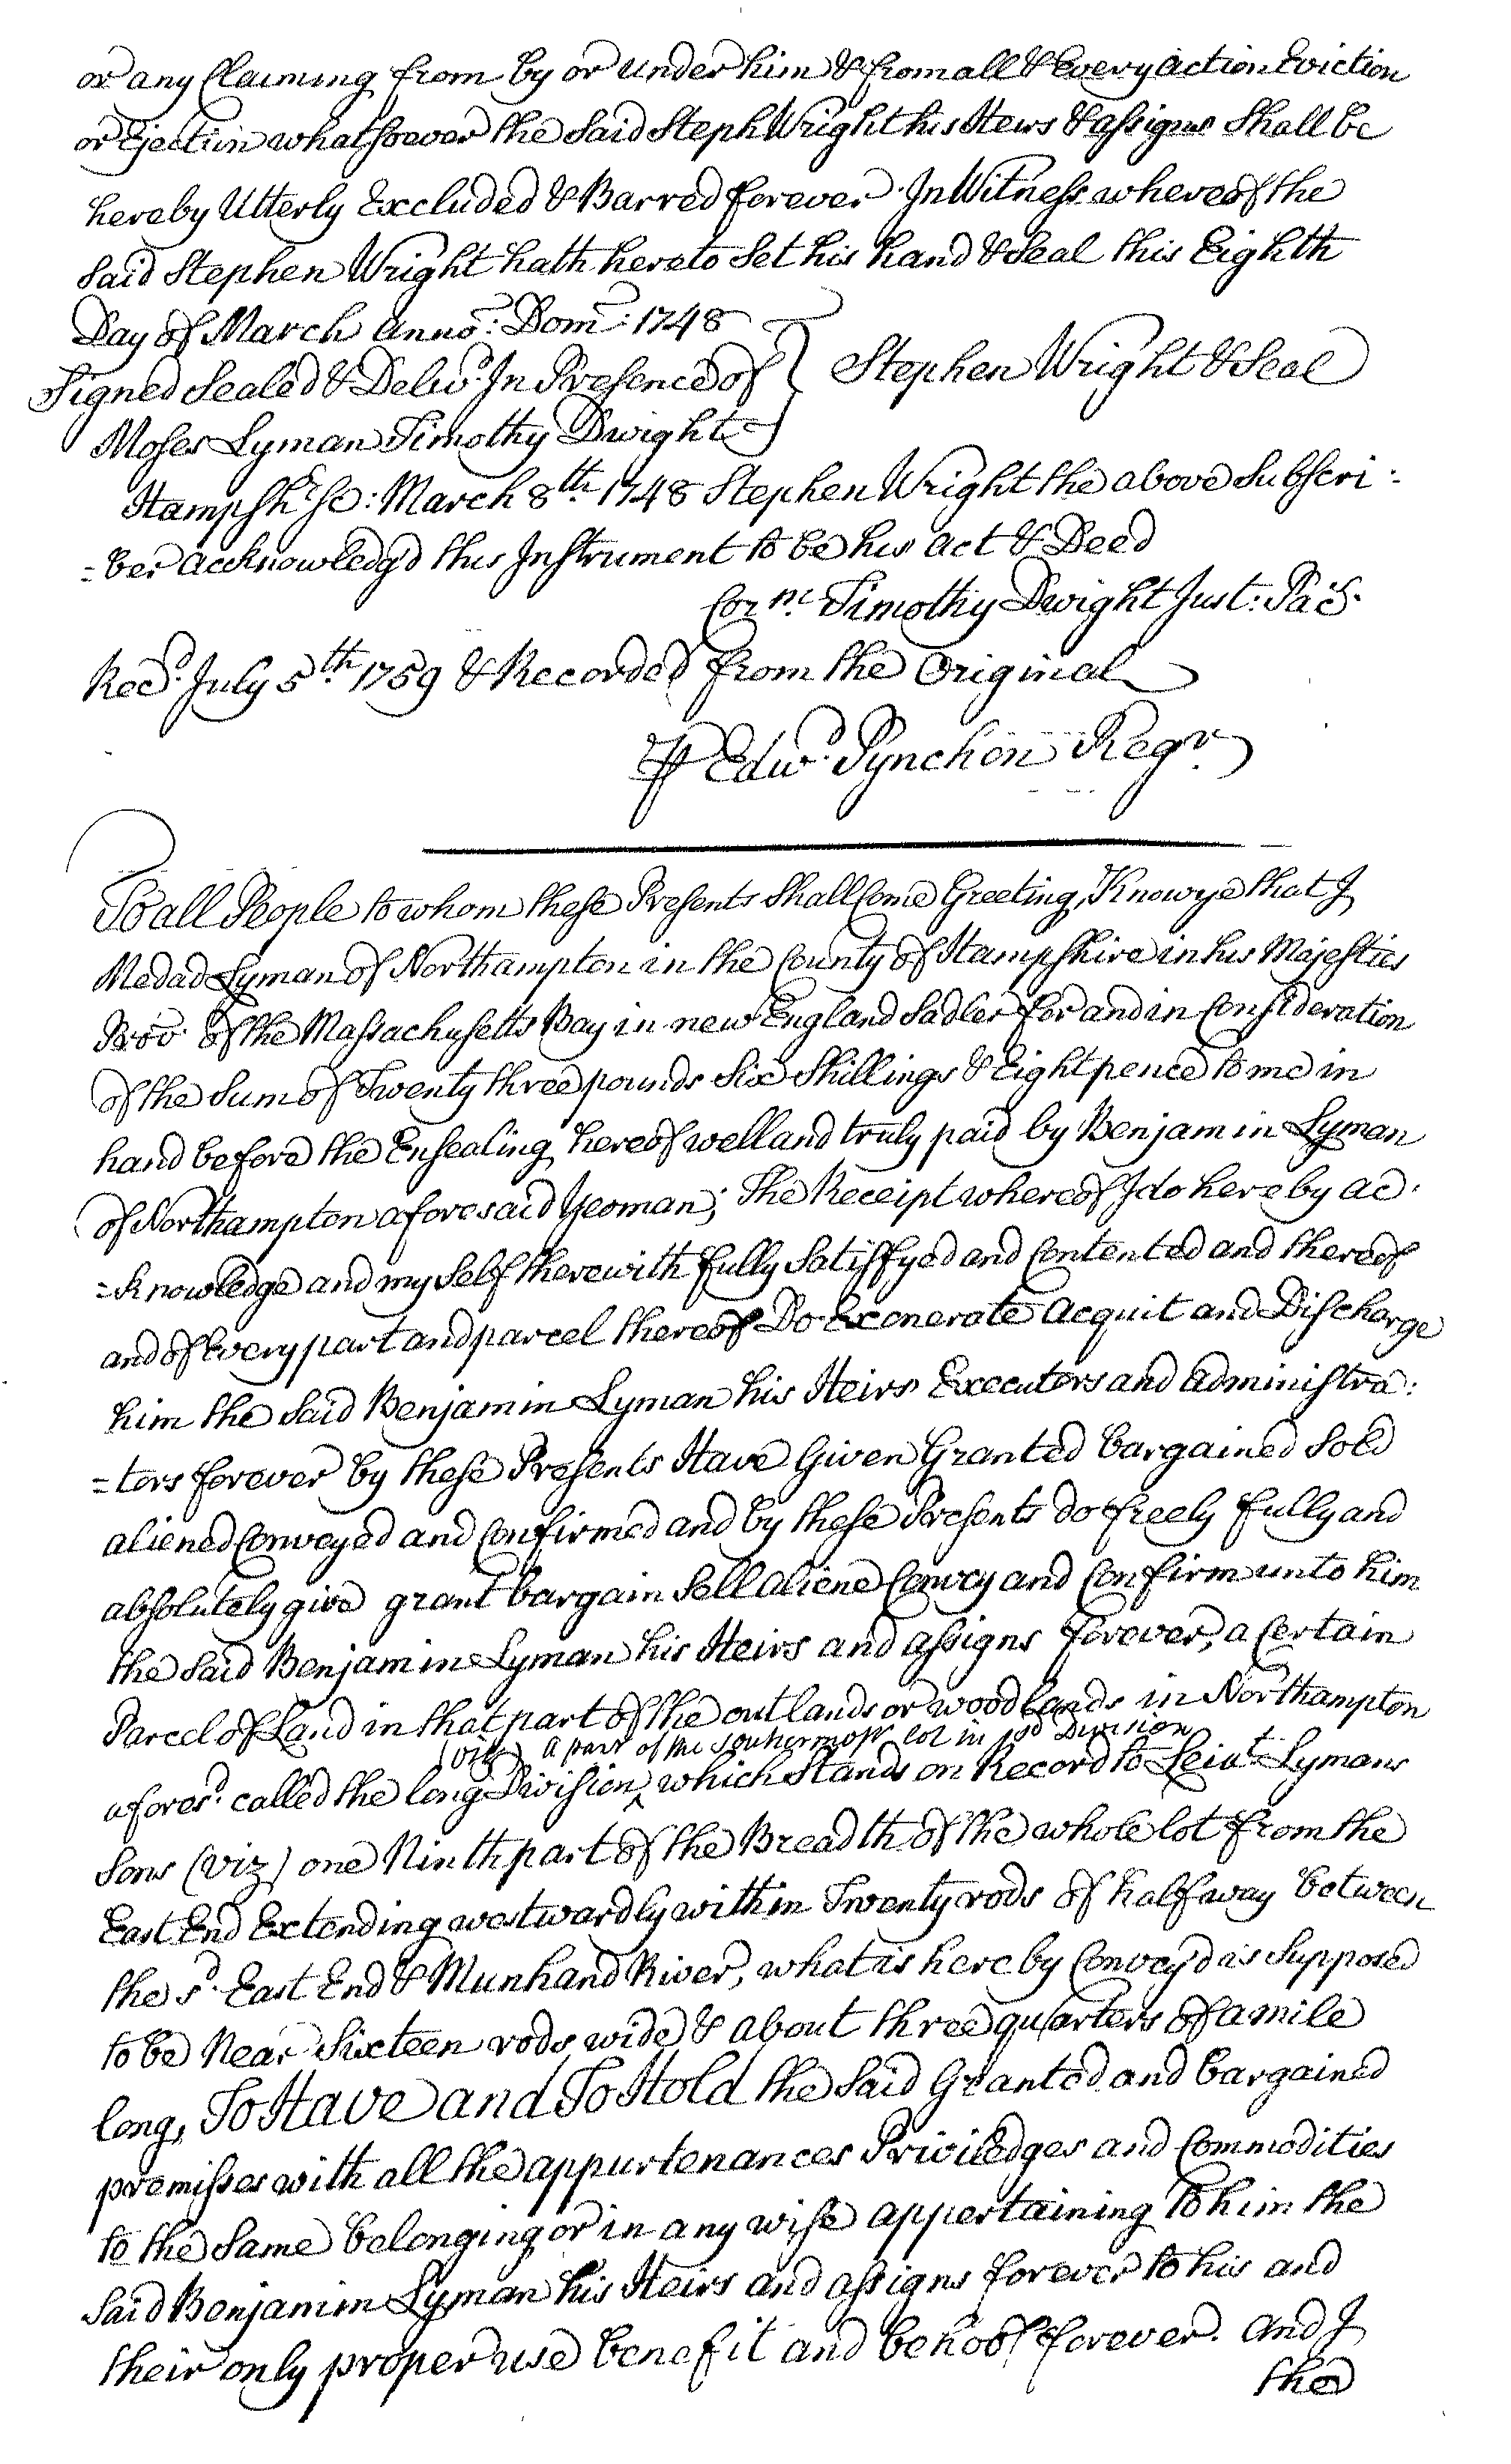 or any Claiming from by or under him & from all & Every action Eviction
or Ejection whatsoever the Said Steph Wright his Heirs & assigns Shall be
hereby Utterly Excluded & Barred forever. In Witness whereof the
Said Stephen Wright hath hereto Set his hand & Seal this Eighth
Day of March Anno: Dom: 1748
Signed Sealed & Delivd. In Presence of } Stephen Wright & Seal
Moses Lyman Timothy Dwight
Hampshr. Sc: March 8th. 1748 Stephen Wright the above Subscri-
=ber acknowledg'd this Instrument to be his act & Deed
Timothy Dwight Just: Pac.
Recd. July 5th. 1759 & Recorded from the Original
Edwd. Pynchon Regr.
To all People to whom these Presents Shall Come Greeting, Know ye that I
Medad Lyman of Northampton in the County of Hampshire in his Majesties
Prov. of the Massachusetts Bay in new England Sadler for and in Consideration
of the Sum of Twenty three pounds Six Shillings & Eight pence to me in
hand before the Ensealing hereof well and truly paid by Benjamin Lyman
of Northampton aforesaid Yeoman; The Receipt whereof I do hereby ac-
=knowledge and my Self therewith fully Satisfyed and Contented and thereof
and of Every part and parcel thereof Do Exonerate Acquit and Discharge
him the Said Benjamin Lyman his Heirs Executors and Administra:
=tors forever by these Presents Have Given Granted bargained Sold
aliened Conveyed and Confirmed and by these Presents do freely fully and
absolutely give grant bargain Sell aliene Convey and Confirm unto him
the Said Benjamin Lyman his Heirs and assigns forever, a Certain
Parcel of Land in that part of the outlands or woodlands in Northampton
(viz) A part of the Southermost lot in sd Division
afores'd. called the long Division ^ which Stands on Record to Leiut. Lymans
Sons (viz) one Ninth part of the Breadth of the whole lot from the
East End Extending westwardly within Twenty rods of half way between
the sd. East End & Munhand River, what is hereby Convey'd is Supposed
to be Near Sixteen rods wide & about three quarters of a mile
long, To Have and To Hold the Said Granted and bargained
premisses with all the appurtenances Priviledges and Commodities
to the Same belonging or in any wise appertaining to him the
Said Benjamin Lyman his Heirs and assigns forever to his and
their only proper use benefit and behoof forever. And I
the